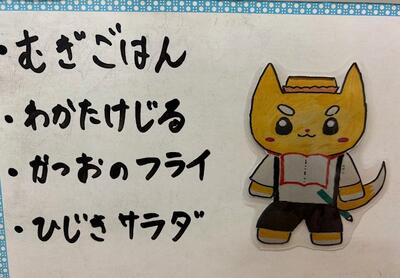 ・むぎごはん
・わかたけじる
・かつおのフライ
・ひじきサラダ